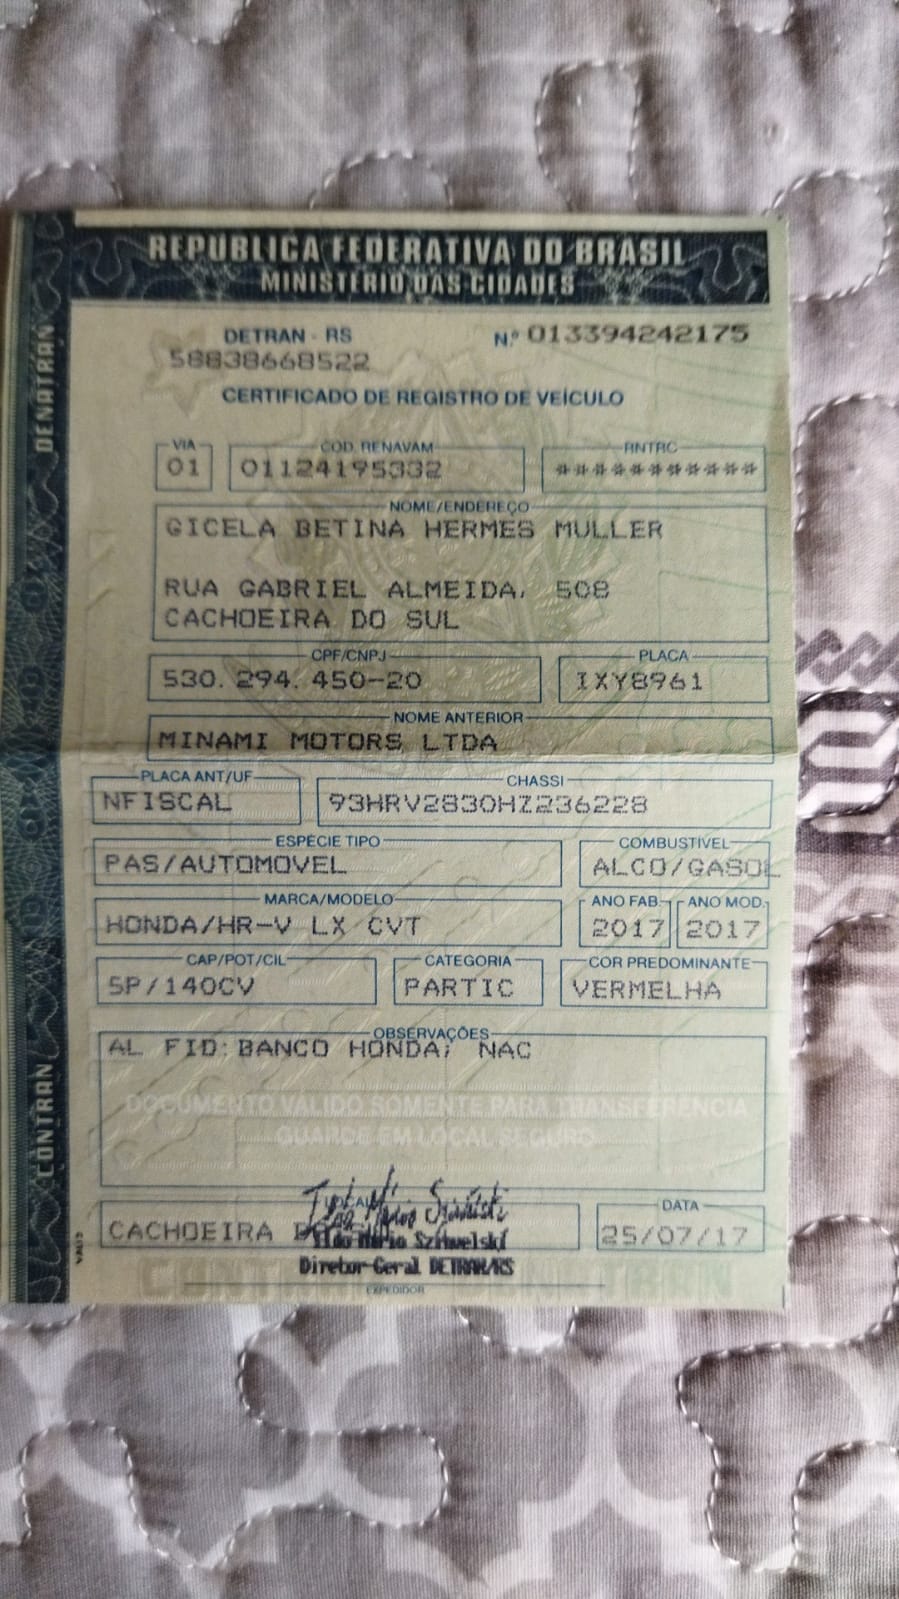 REPÚBLICA FEDERATIVA DO BRASIL
MINISTÉRIO DAS CIDADES
DENATRAN
CONTRAN
DETRAN - RS Nº 013394242175
58838668522
CERTIFICADO DE REGISTRO DE VEÍCULO
VIA COD. RENAVAM RNTRC
01 01124195332 ***********
NOME/ENDEREÇO
GICELA BETINA HERMES MULLER
RUA GABRIEL ALMEIDA, 508
CACHOEIRA DO SUL
CPF/CNPJ PLACA
530.294.450-20 IXY8961
NOME ANTERIOR
MINAMI MOTORS LTDA
PLACA ANT/UF CHASSI
NFISCAL 93HRV2830HZ236228
ESPÉCIE TIPO COMBUSTÍVEL
PAS/AUTOMOVEL ALCO/GASOL
MARCA/MODELO ANO FAB. ANO MOD.
HONDA/HR-V LX CVT 2017 2017
CAP/POT/CIL CATEGORIA COR PREDOMINANTE
5P/140CV PARTIC VERMELHA
OBSERVAÇÕES
AL FID:BANCO HONDA; NAC
DOCUMENTO VÁLIDO SOMENTE PARA TRANSFERÊNCIA
GUARDE EM LOCAL SEGURO
LOCAL DATA
CACHOEIRA 25/07/17
Ildo Mário Szinvelski
Diretor-Geral DETRAN/RS
CONTRAN DENATRAN
EXPEDIDOR